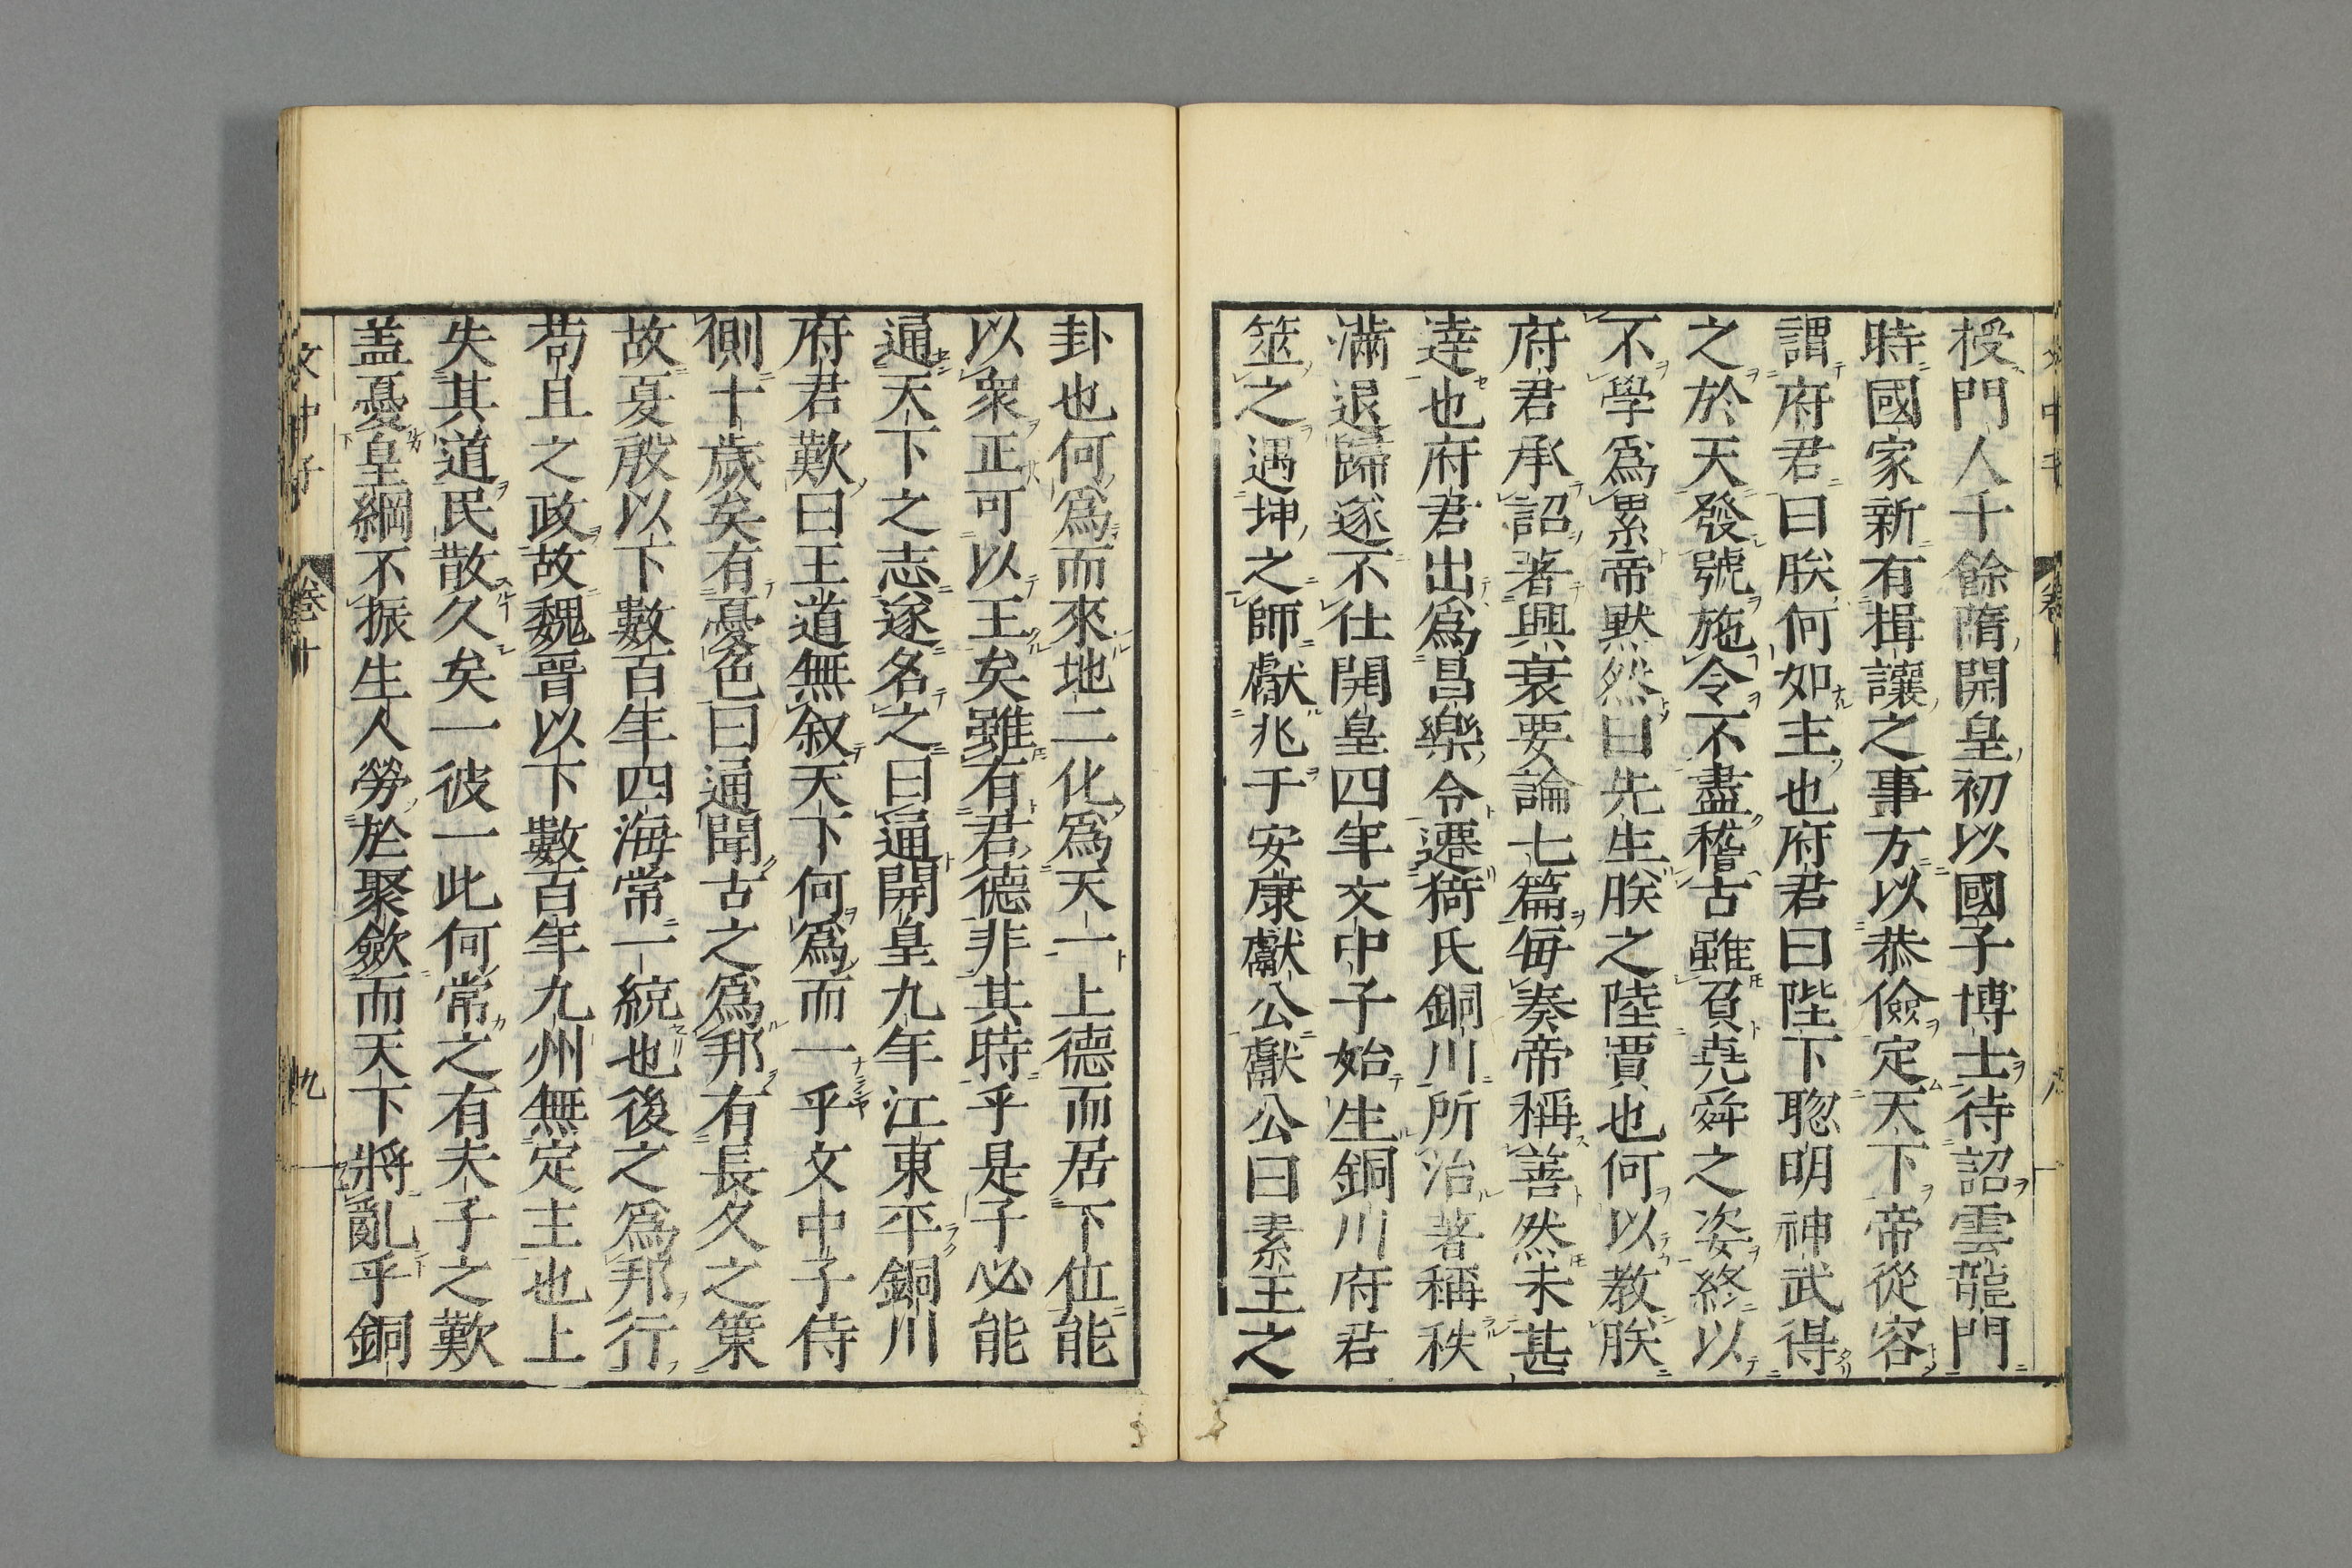 授門人千餘隋開皇初以國子博士待詔雲龍門
時國家新有揖讓之事方以恭儉定天下帝從容
謂府君曰朕何如主也府君曰陛下聰明神武得
之於天發號施令不盡稽古雖負堯舜之姿終以
不學爲累帝默然曰先生朕之陸賈也何以教朕
府君承詔著興衰要論七篇每奏帝稱善然未甚
達也府君出爲昌樂令遷猗氏銅川所治著稱秩
滿退歸遂不仕開皇四年文中子始生銅川府君
筮之遇坤之師獻兆于安康獻公獻公曰素王之
卦也何爲而來地二化爲天一上德而居下位能
以衆正可以王矣雖有君德非其時乎是子必能
通天下之志遂名之曰通開皇九年江東平銅川
府君歎曰王道無叙天下何爲而一乎文中子侍
側十歲矣有憂色曰通聞古之爲邦有長久之策
故夏殷以下數百年四海常一統也後之爲邦行
苟且之政故魏晉以下數百年九州無定主也上
失其道民散久矣一彼一此何常之有夫子之歎
盖憂皇綱不振生人勞於聚斂而天下將亂乎銅
文中子 卷十 九